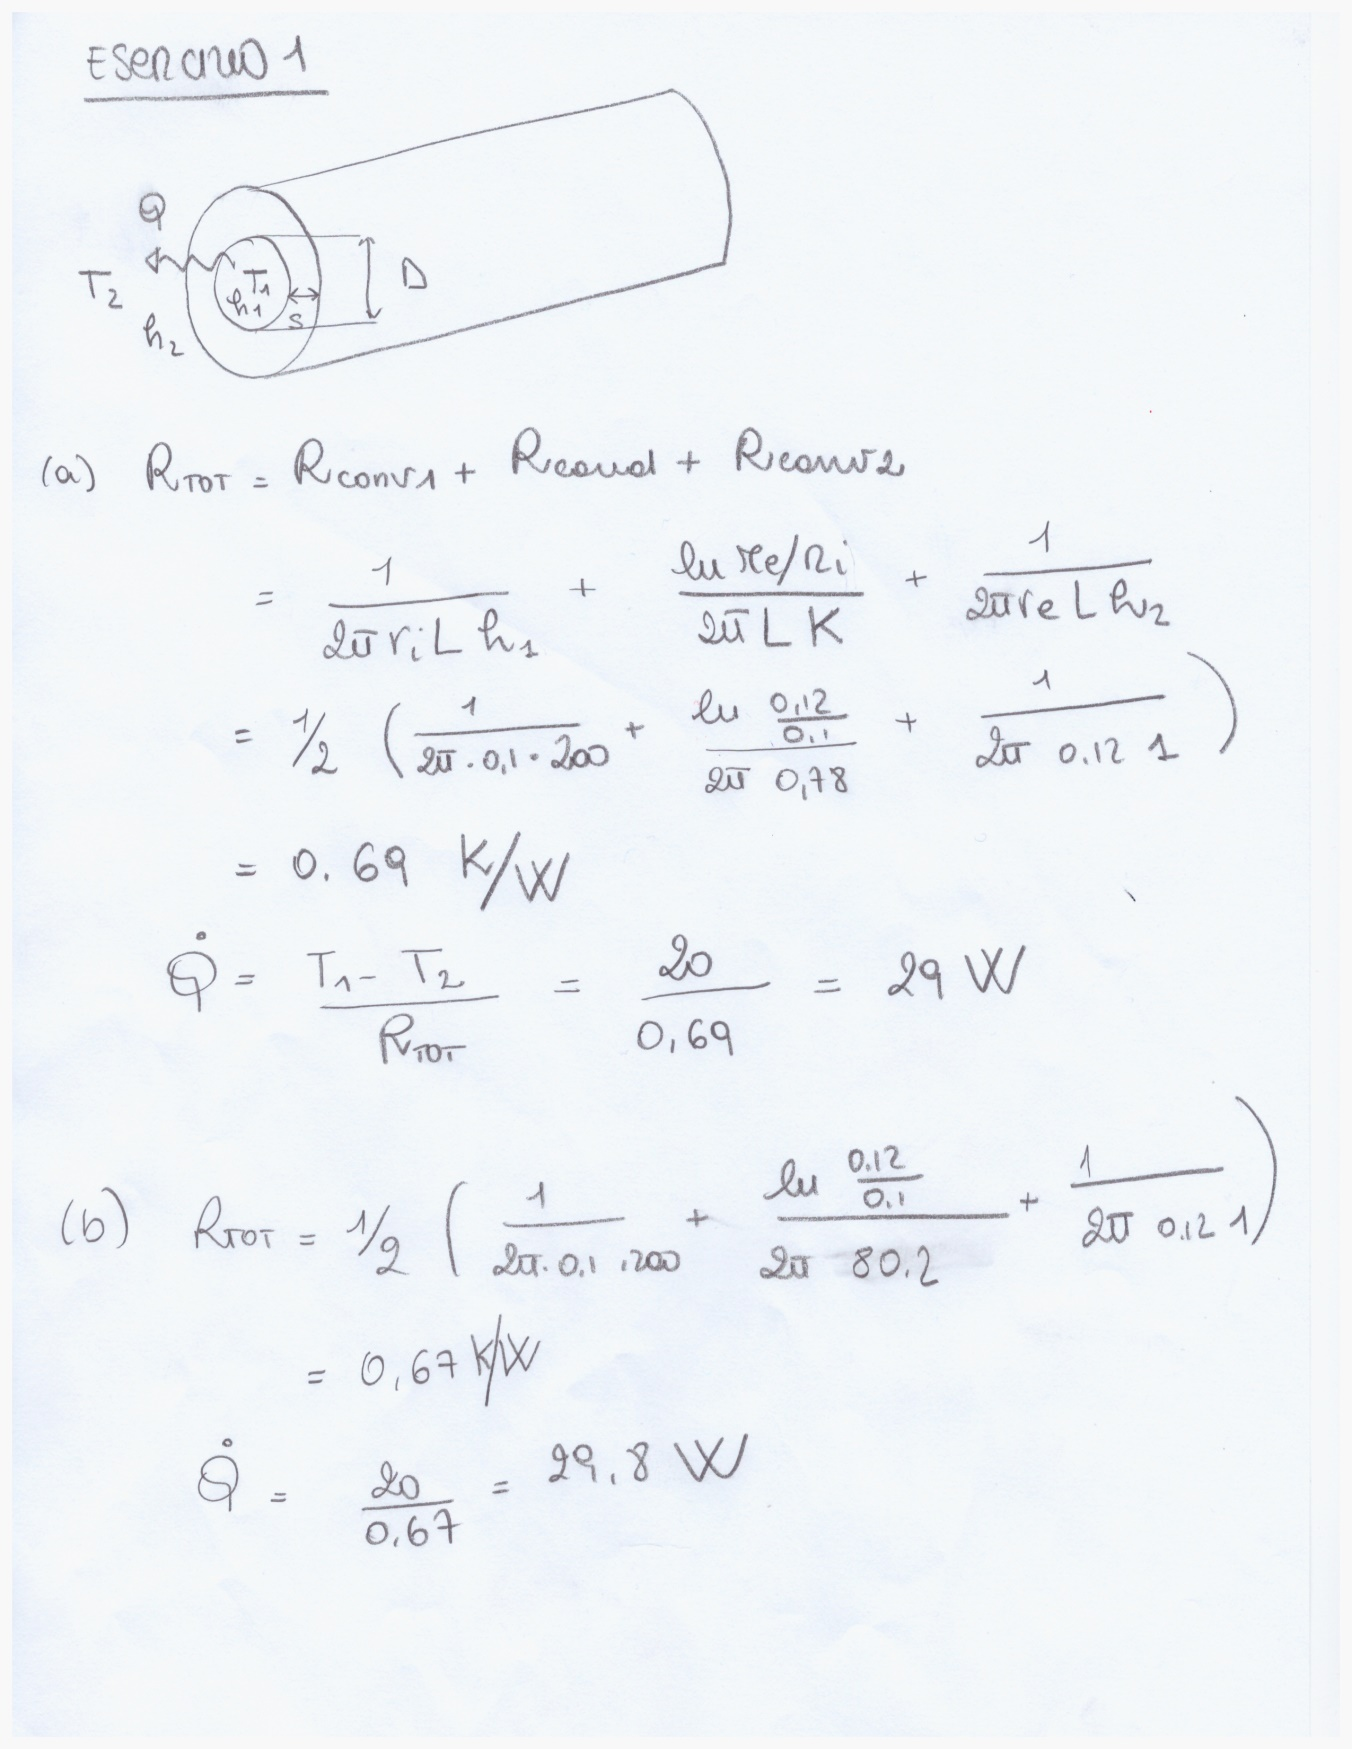 ESERCIZIO 1
Q
T1
T2
h1
D
S
h2
(a) RTOT = Rconv1 + Rcond + Rconv2
= 1/(2π ri L h1) + (ln re/ri)/(2π L K) + 1/(2π re L h2)
= 1/2 ( 1/(2π · 0,1 · 200) + (ln 0,12/0,1)/(2π 0,78) + 1/(2π 0.12 1) )
= 0.69 K/W
Q̇ = (T1 - T2)/RTOT = 20/0,69 = 29 W
(b) RTOT = 1/2 ( 1/(2π · 0,1 · 200) + (ln 0.12/0.1)/(2π 80.2) + 1/(2π 0.12 1) )
= 0,67 K/W
Q̇ = 20/0.67 = 29,8 W